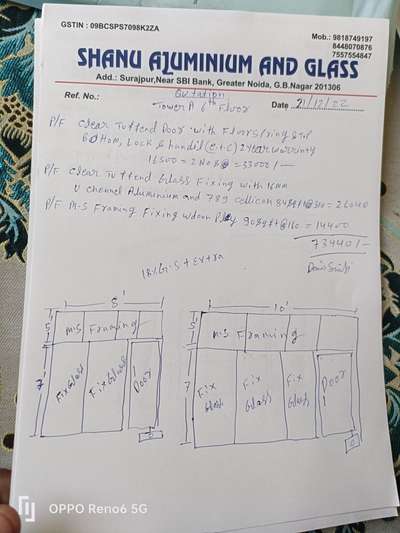 GSTIN : 09BCSPS7098K2ZA
Mob.: 9818749197
8448070876
7557554847
SHANU AJUMINIUM AND GLASS
Add.: Surajpur,Near SBI Bank, Greater Noida, G.B.Nagar 201306
Ref. No.: Qutation
Tower A 6th Floor Date 21/12/22
P/F Clear Tuffend Door with Floor Spring & Top
Bottom, Lock & handil (C+C) 2 year warranty
16500 = 2 Nos = 33002/-
P/F Clear Tuffend Glass Fixing with 12mm
U channel Aluminium and 789 cellicon 84 sqft @ 310 = 26040
P/F M.S Framing Fixing 90 sqft @ 160 = 14400
73440/-
18% G.S.T Extra
8'
10'
5
M.S Framing
M.S Framing
7
Fix Glass
Fix Glass
Door
7
Fix Glass
Fix Glass
Fix Glass
Door
OPPO Reno6 5G